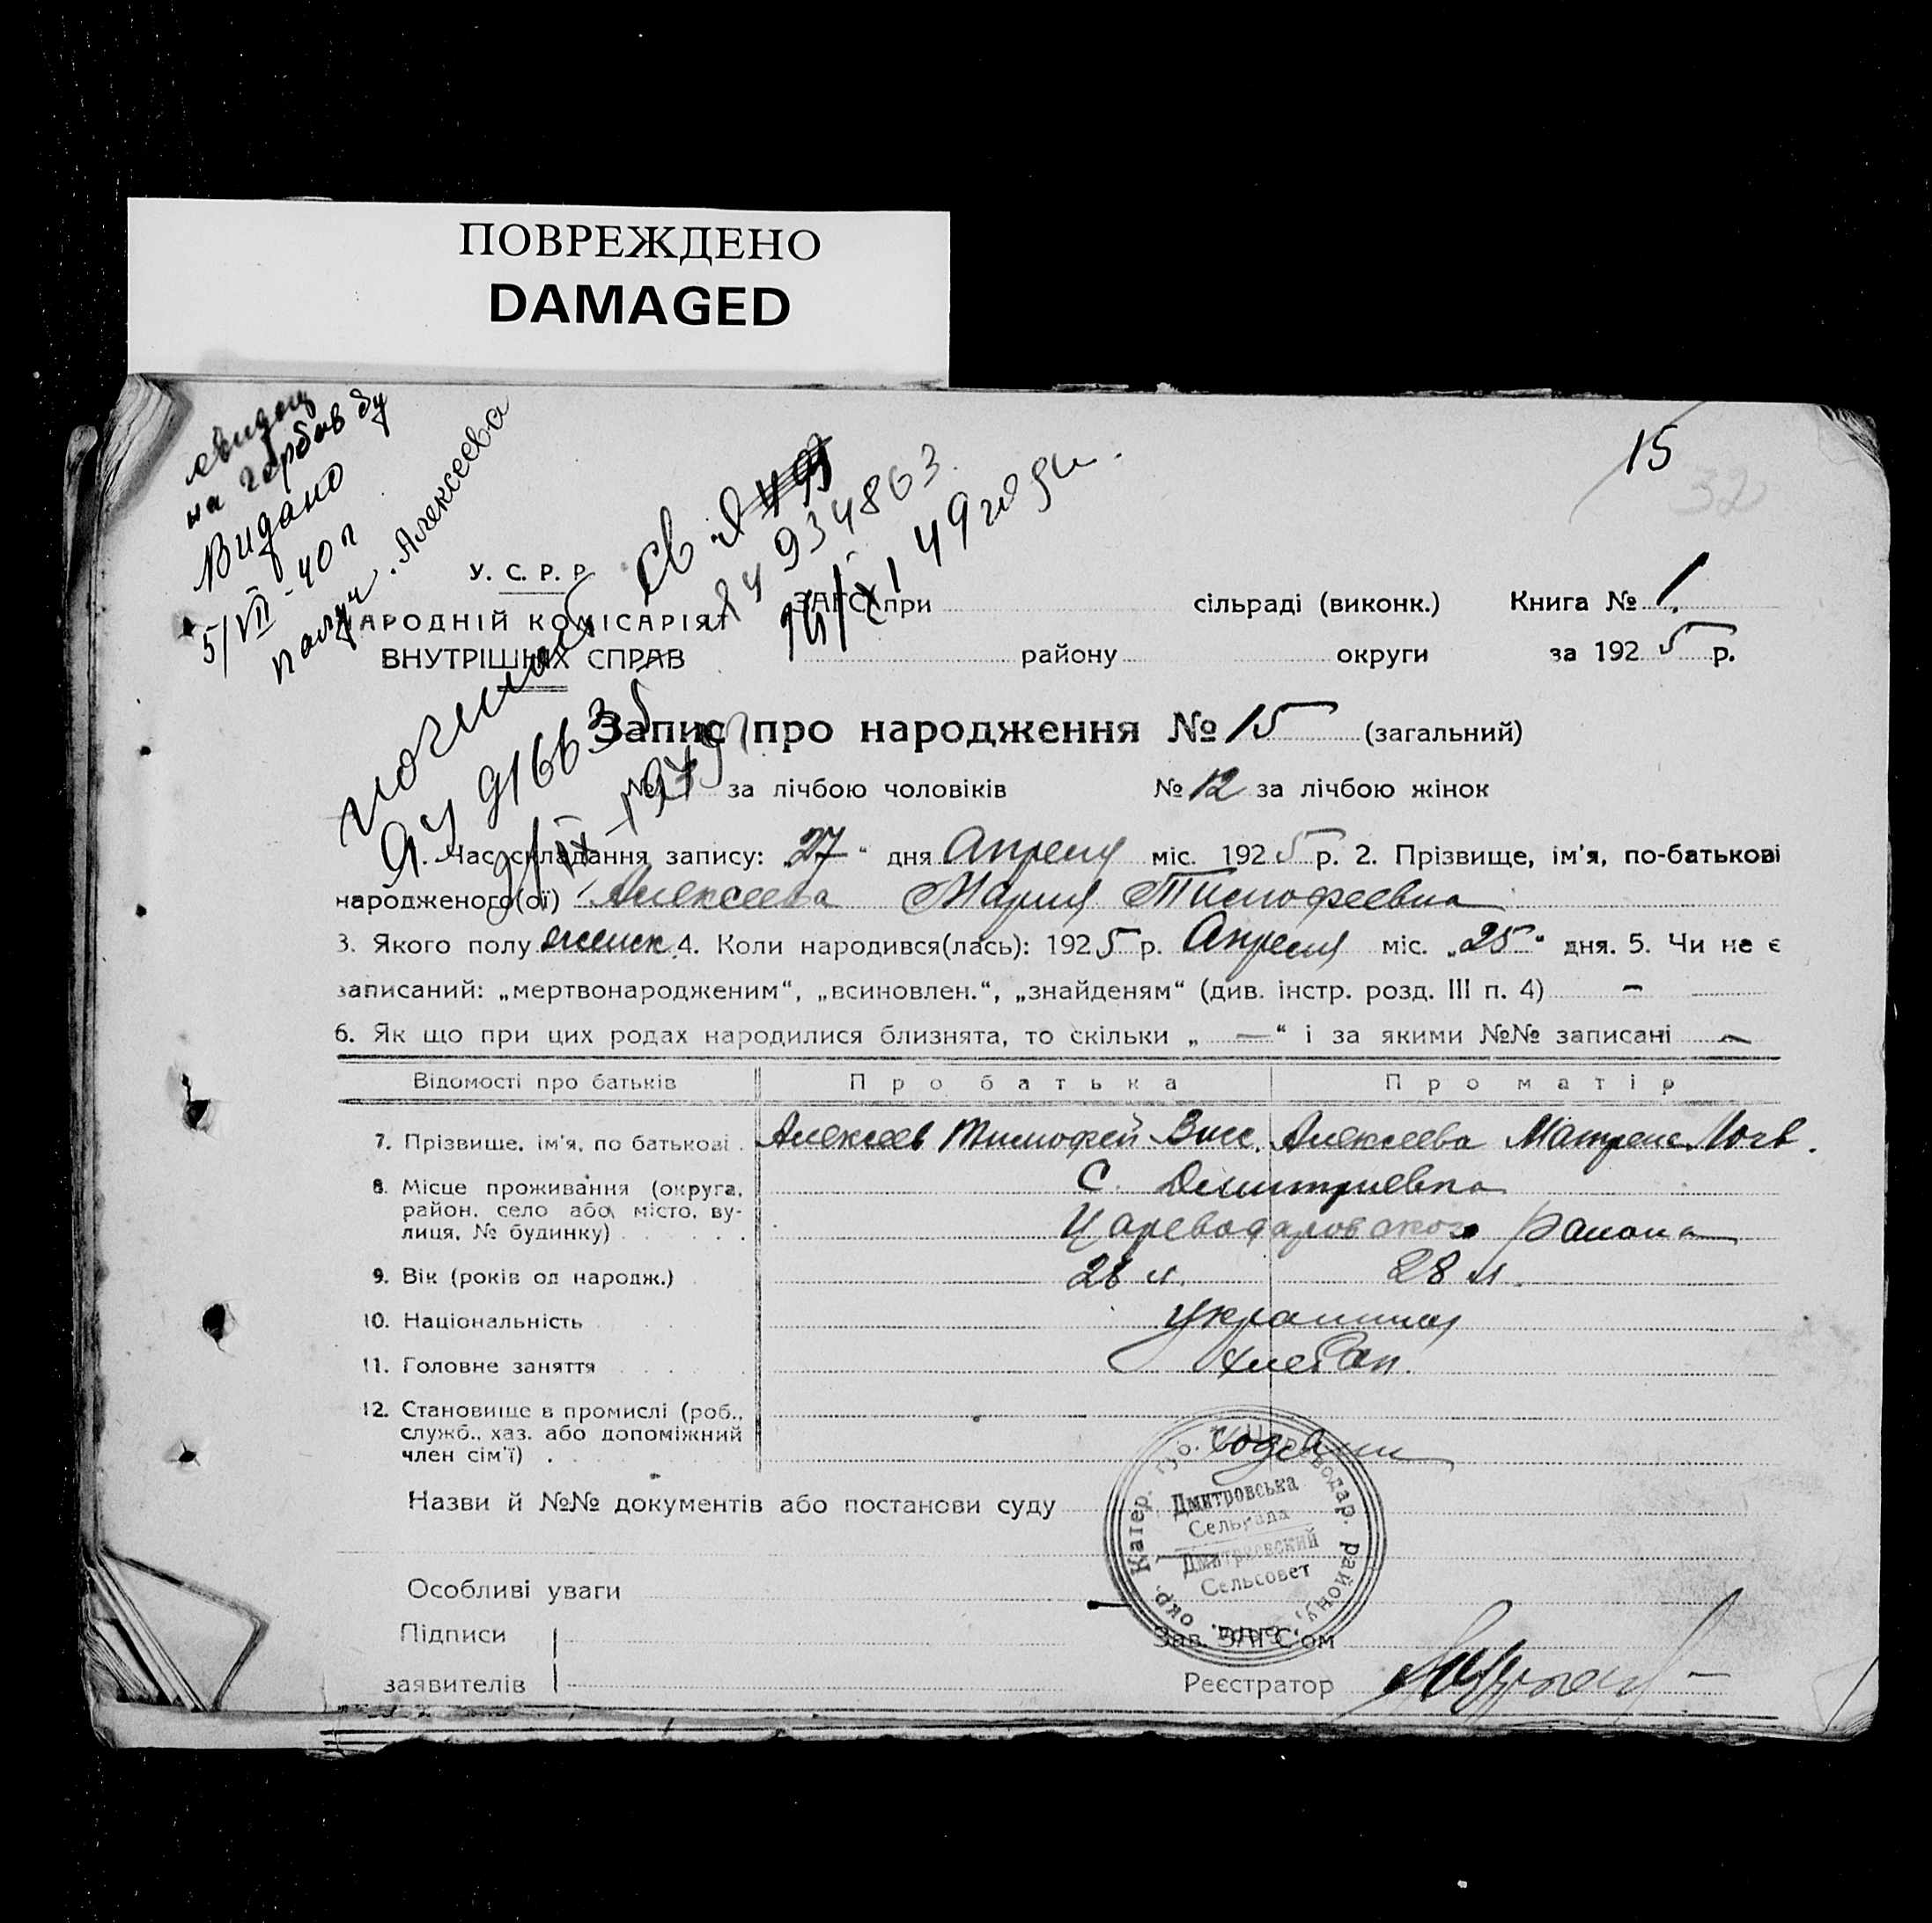 ПОВРЕЖДЕНО
DAMAGED
15
32
на гербов бу
Видано
5/VII-40 г
получ. Алексеева
св
ЯЧ 934863.
1949 года.
ЯЧ 916635
У. С. Р. Р.
НАРОДНІЙ КОМІСАРІЯТ
ВНУТРІШНІХ СПРАВ
ЗАГС при сільраді (виконк.) Книга № 1.
району округи за 1925 р.
Запис про народження № 15 (загальний)
№ за лічбою чоловіків № 12 за лічбою жінок
1. Час складання запису: 27 " дня Апреля міс. 1925 р. 2. Прізвище, ім'я, по-батькові
народженого(ої) Алексеева Мария Тимофеевна
3. Якого полу женск. 4. Коли народився(лась): 1925 р. Апреля міс. „25" дня. 5. Чи не є
записаний: „мертвонародженим“, „всиновлен.“, „знайденям“ (див. інстр. розд. III п. 4) –
6. Як що при цих родах народилися близнята, то скільки „ — “ і за якими №№ записані —
Відомості про батьків Про батька Про матір
7. Прізвище, ім'я, по батькові Алексеев Тимофей Васс. Алексеева Матрена Логв.
8. Місце проживання (округа, С. Димитриевка
район, село або місто, ву-
лиця, № будинку) Цареводаровского района
9. Вік (років од народж.) 28 л. 28 л.
10. Національність украинцы
11. Головне заняття хлебоп.
12. Становище в промислі (роб.,
служб., хаз. або допоміжний
член сім'ї)
Назви й №№ документів або постанови суду
Катер. губ. водар. району, окр.
Дмитровська
Сельрада
Дмитровский
Сельсовет
Особливі уваги
Підписи Зав. ЗАГС'ом
заявителів Реєстратор